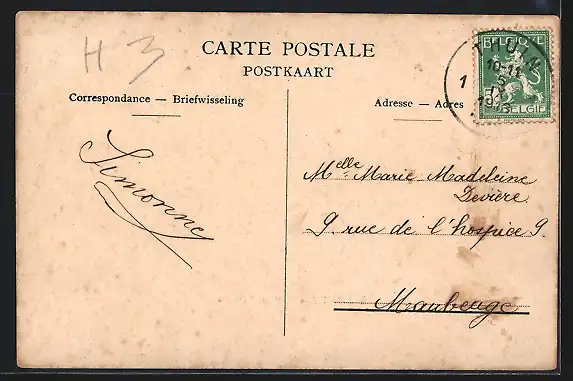 H 3
CARTE POSTALE
POSTKAART
Correspondance — Briefwisseling
Adresse — Adres
BELGIQUE
5
BELGIË
THUIN
1
10-11
5
IX
1913
Simonne
Melle Marie Madeleine
Devière
9. rue de l'hospice 9.
Maubeuge